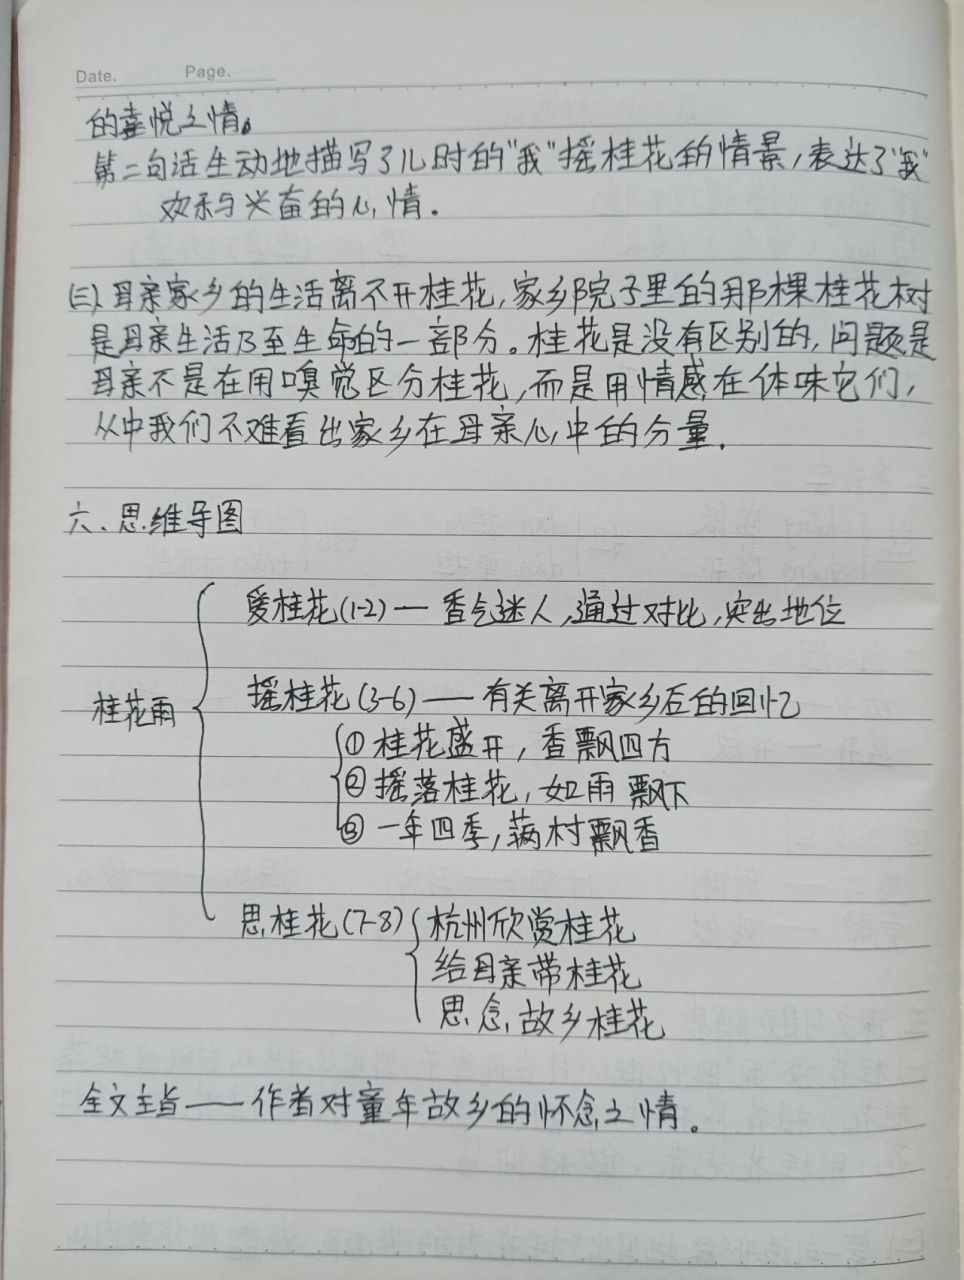 Date.    Page.
的喜悦之情。
第二句话生动地描写了儿时的“我”摇桂花的情景,表达了“我”
欢乐与兴奋的心情.
(三)、母亲家乡的生活离不开桂花,家乡院子里的那棵桂花树
是母亲生活乃至生命的一部分。桂花是没有区别的,问题是
母亲不是在用嗅觉区分桂花,而是用情感在体味它们,
从中我们不难看出家乡在母亲心中的分量.
六、思维导图
桂花雨
爱桂花(1-2)— 香气迷人,通过对比,突出地位
摇桂花(3-6)— 有关离开家乡后的回忆
① 桂花盛开,香飘四方
② 摇落桂花,如雨飘下
③ 一年四季,满村飘香
思桂花(7-8)
杭州欣赏桂花
给母亲带桂花
思念故乡桂花
全文主旨——作者对童年故乡的怀念之情.